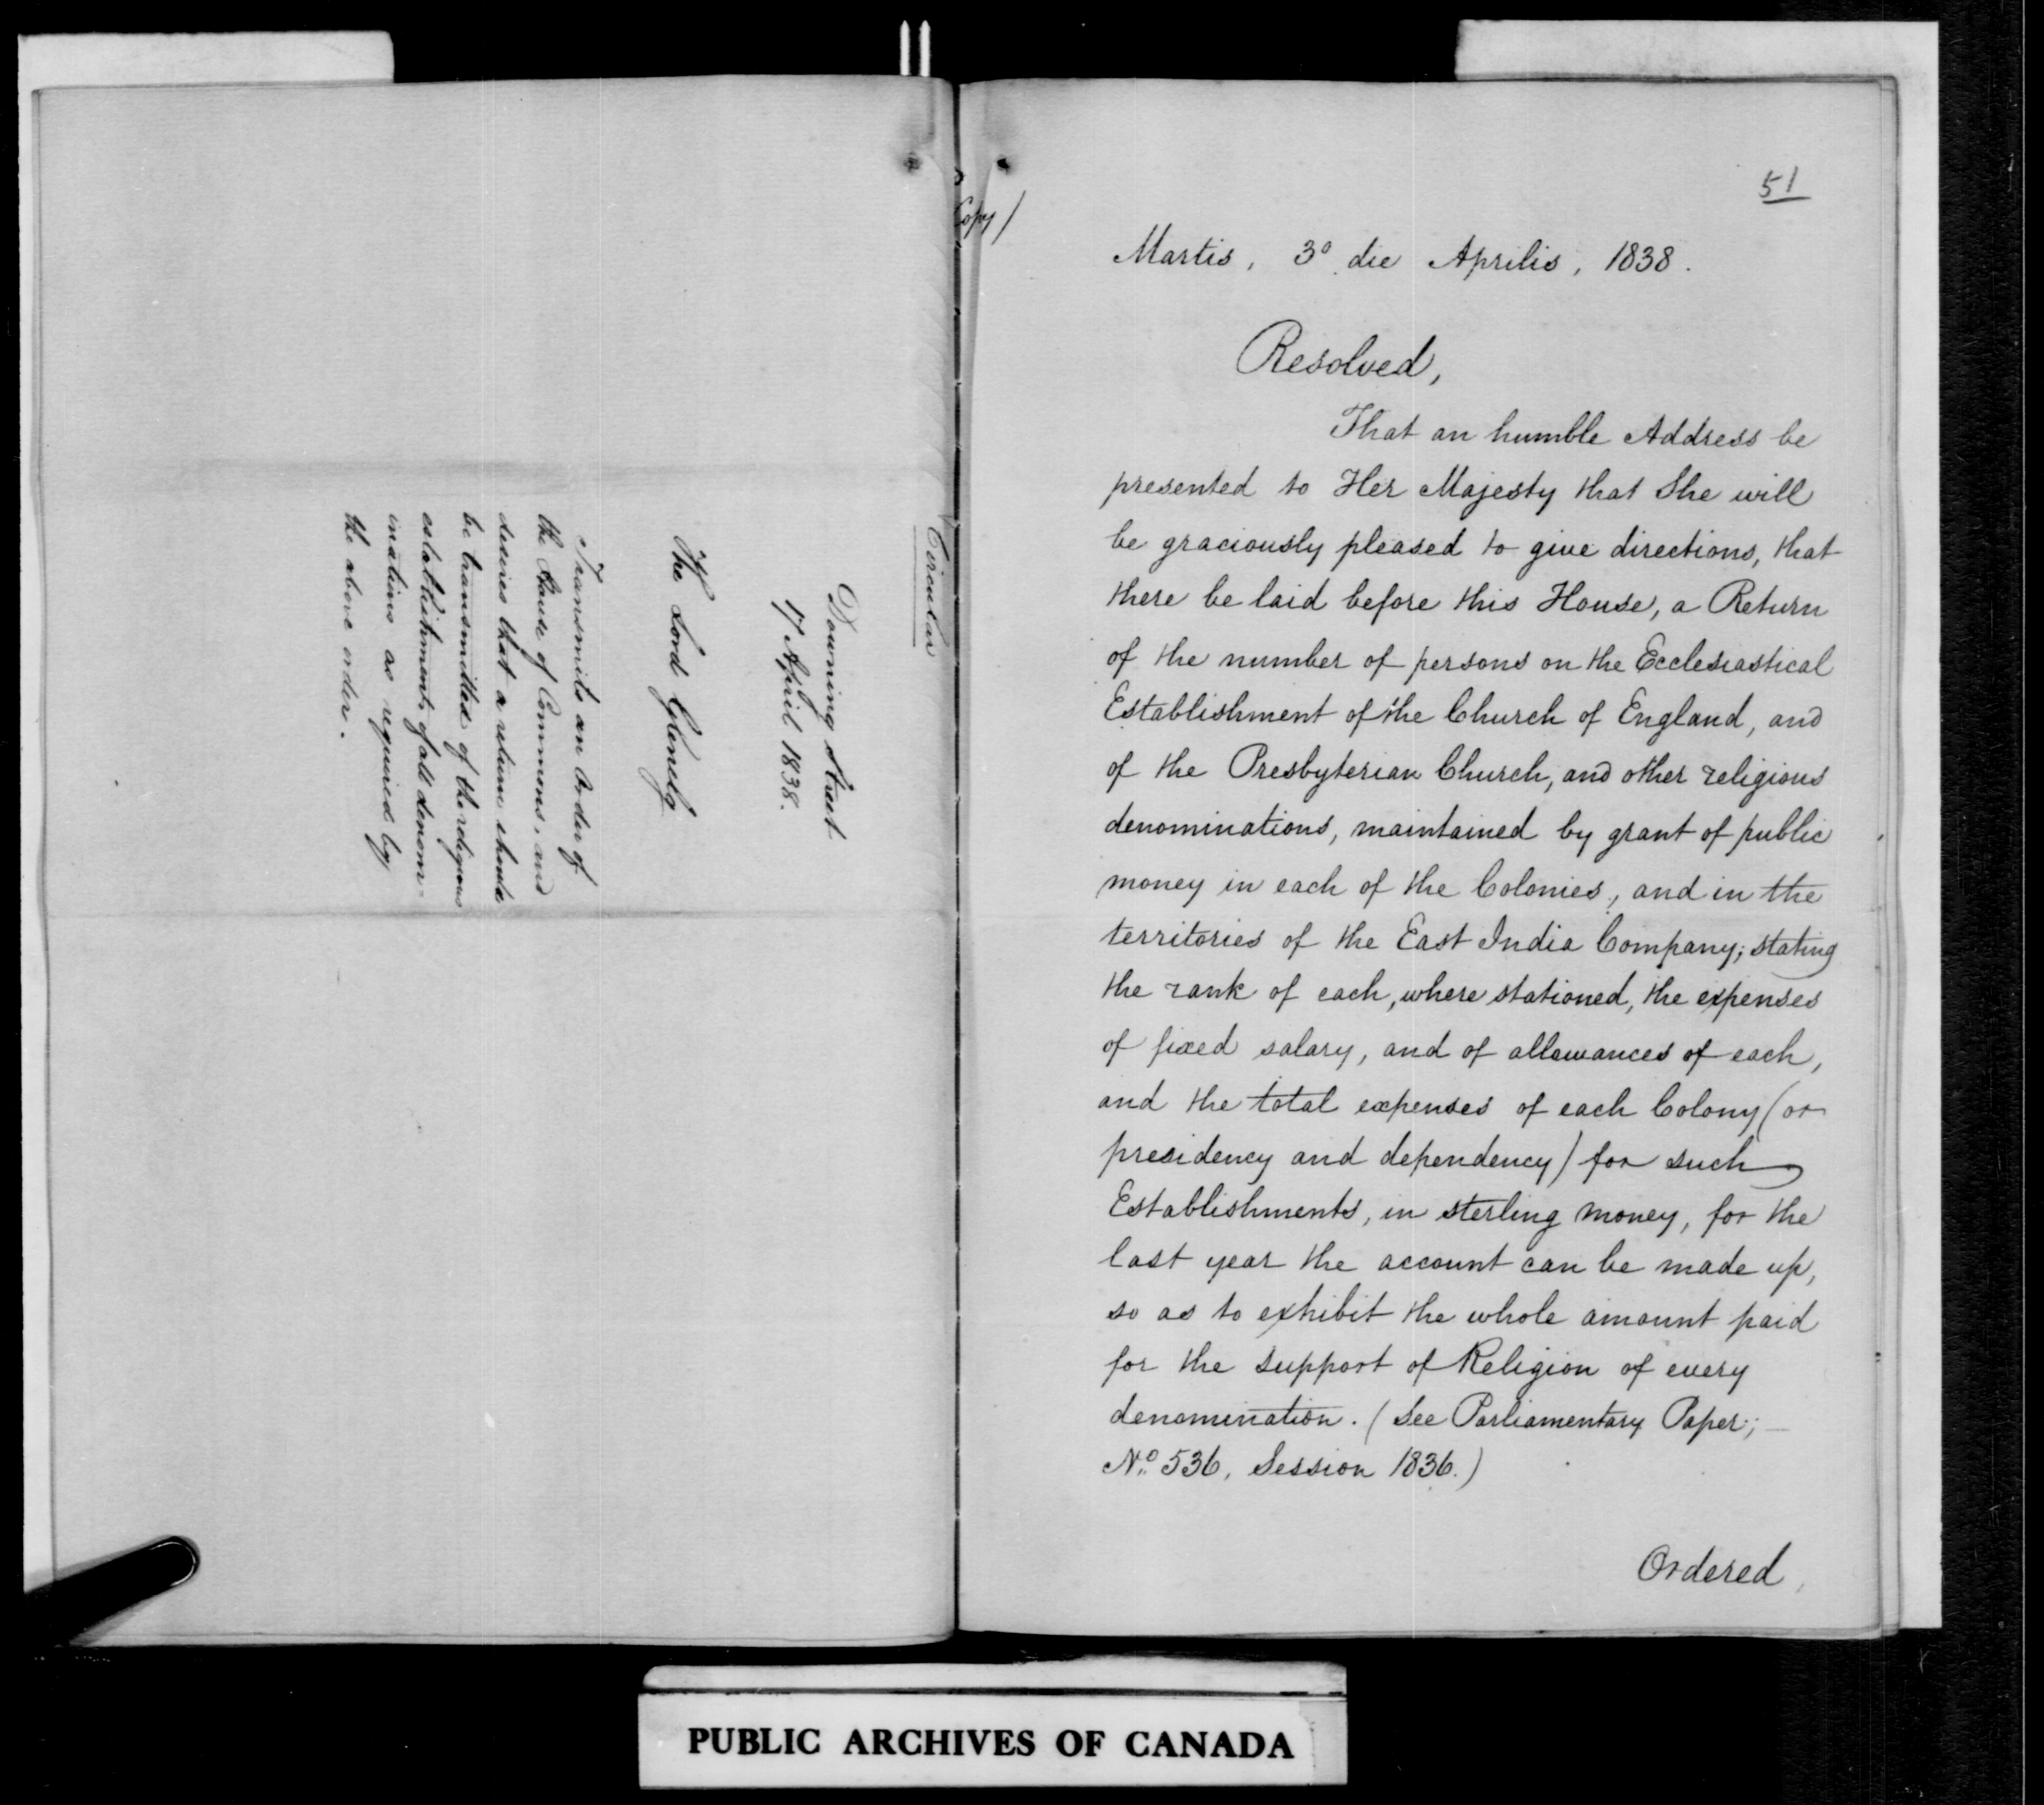 Circular
Downing Street
17 April 1838.
The Lord Glenelg
Transmits an Order of
the House of Commons, and
desires that a return should
be transmitted of the religious
establishments of all denom-
inations as required by
the above order.
Copy)
51
Martis, 3o die Aprilis, 1838.
Resolved,
That an humble Address be
presented to Her Majesty that She will
be graciously pleased to give directions, that
there be laid before this House, a Return
of the number of persons on the Ecclesiastical
Establishment of the Church of England, and
of the Presbyterian Church, and other religious
denominations, maintained by grant of public
money in each of the Colonies, and in the
territories of the East India Company; stating
the rank of each, where stationed, the expenses
of fixed salary, and of allowances of each,
and the total expenses of each Colony (or
presidency and dependency) for such
Establishments, in sterling money, for the
last year the account can be made up,
so as to exhibit the whole amount paid
for the support of Religion of every
denomination. (See Parliamentary Paper;
No. 536, Session 1836.)
Ordered,
PUBLIC ARCHIVES OF CANADA